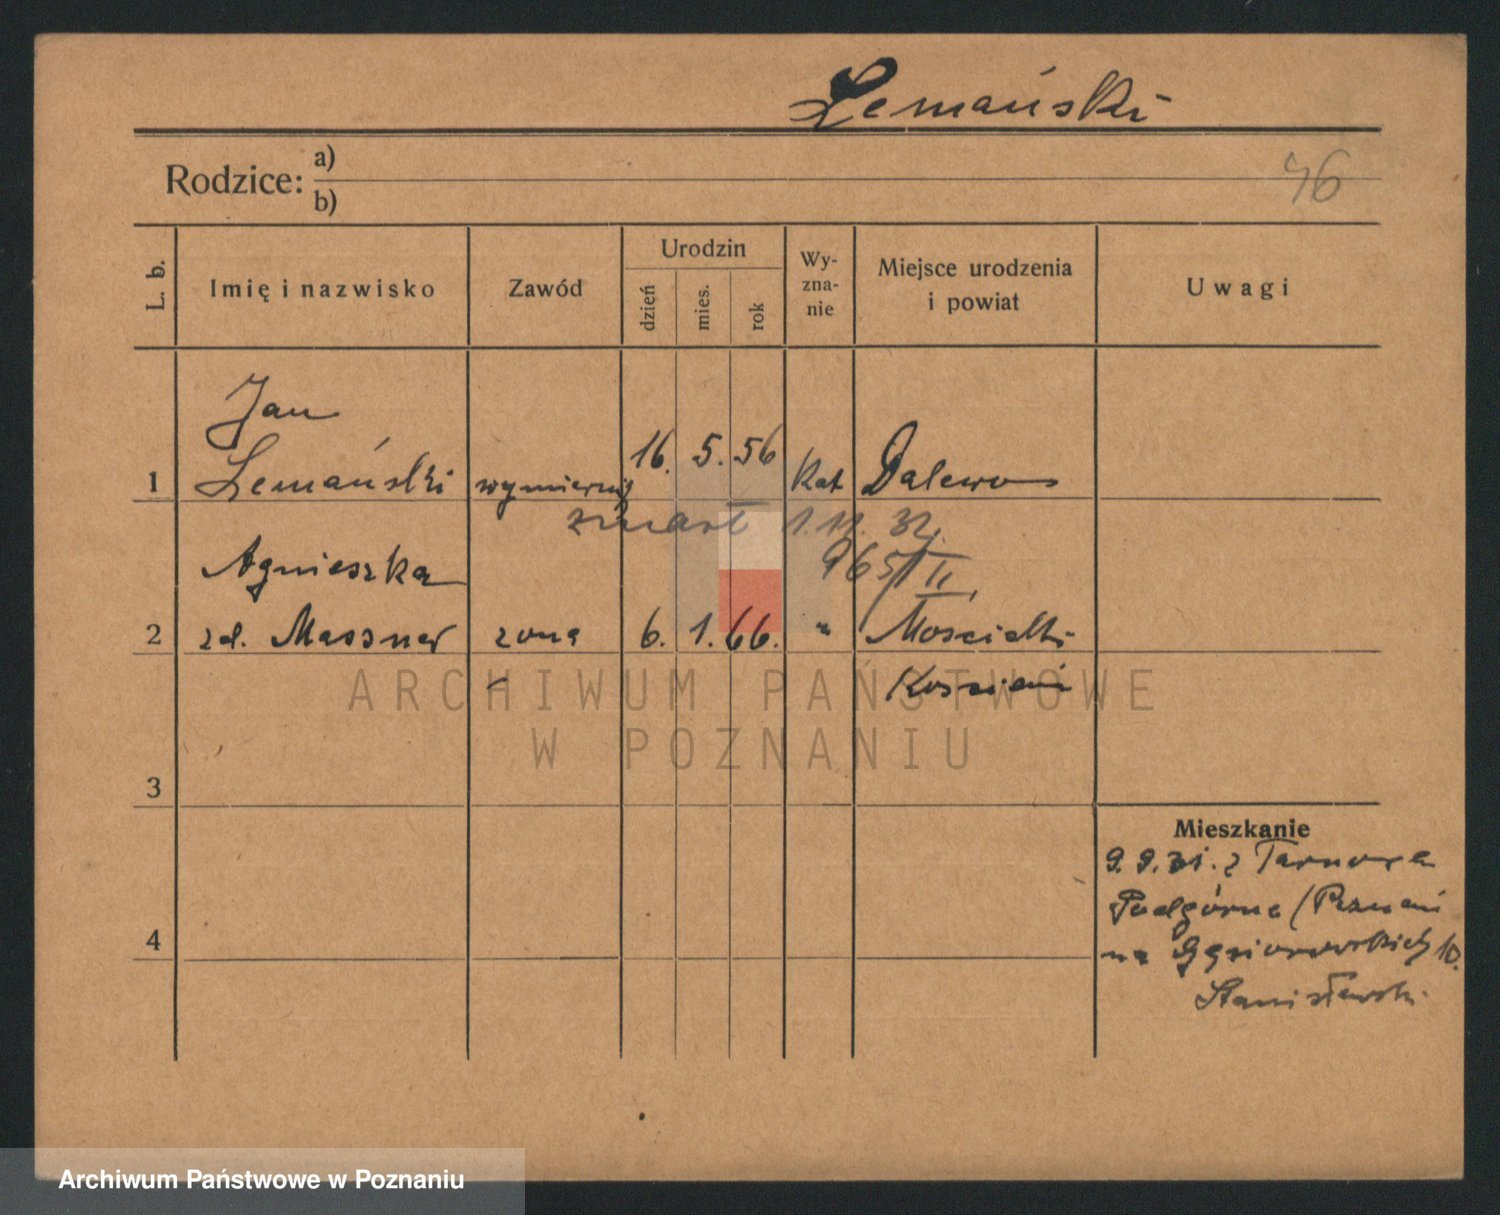 Lemański
Rodzice: a)
b)
46
L. b.
Imię i nazwisko
Zawód
Urodzin
dzień
mies.
rok
Wy-
zna-
nie
Miejsce urodzenia
i powiat
Uwagi
Jan
1 Lemański wymiernik 16. 5. 56 kat Dalewo
zmarł 1.11. 32.
965/II
Agnieszka
2 zd. Massner żona 6. 1. 66. "
Kościan
3
Mieszkanie
9.9.31. z Tarnowa
Podgórne / Poznań
4
na Gąsiorowskich 10.
Stanisławski
ARCHIWUM PAŃSTWOWE
W POZNANIU
Archiwum Państwowe w Poznaniu